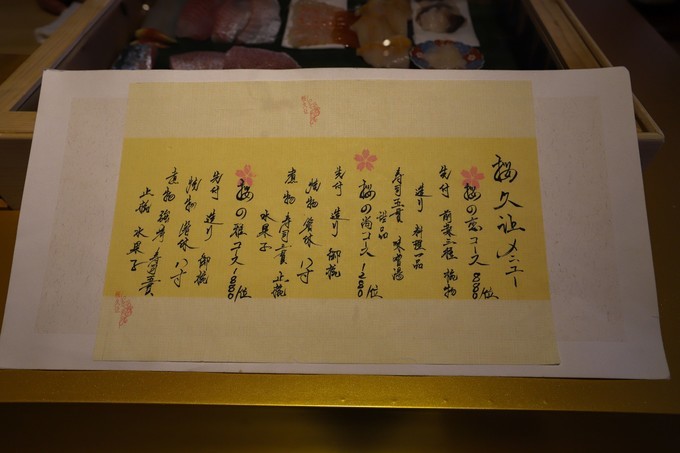 桜久让メニュー
桜の恋コース 880/位
先付 前菜三種 椀物
造り 料理一品
寿司五貫 味噌湯
甘品
桜の尚コース 1280/位
先付 造り 御椀
焼物 箸休 八寸
煮物 寿司六貫 止椀
水果子
桜の コース 1880/位
先付 造り 御椀
焼物 箸休 八寸
煮物 寿司 貫
止椀 水果子